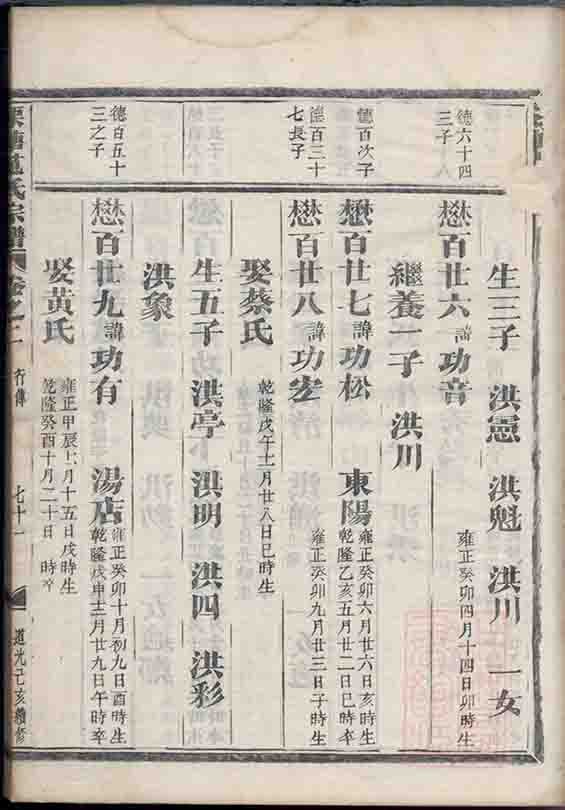 生三子 洪憲 洪魁 洪川 一女
德六十四三子
懋百廿六 諱功音 雍正癸卯四月十四日卯時生
繼養一子 洪川
德百次子
懋百廿七 諱功松 東陽 雍正癸卯六月廿六日亥時生
乾隆乙亥五月廿二日巳時卒
德百三十七長子
懋百廿八 諱功宏 雍正癸卯九月廿三日子時生
娶蔡氏 乾隆戊午十二月廿八日巳時生
生五子 洪亭 洪明 洪四 洪彩
洪象
德百五十三之子
懋百廿九 諱功有 湯店 雍正癸卯十月初九日酉時生
乾隆戊申十二月廿九日午時卒
娶黃氏 雍正甲辰七月十五日戌時生
乾隆癸酉十月二十日 時卒
氏宗譜 卷之二 行傳 七十一 道光己亥續修